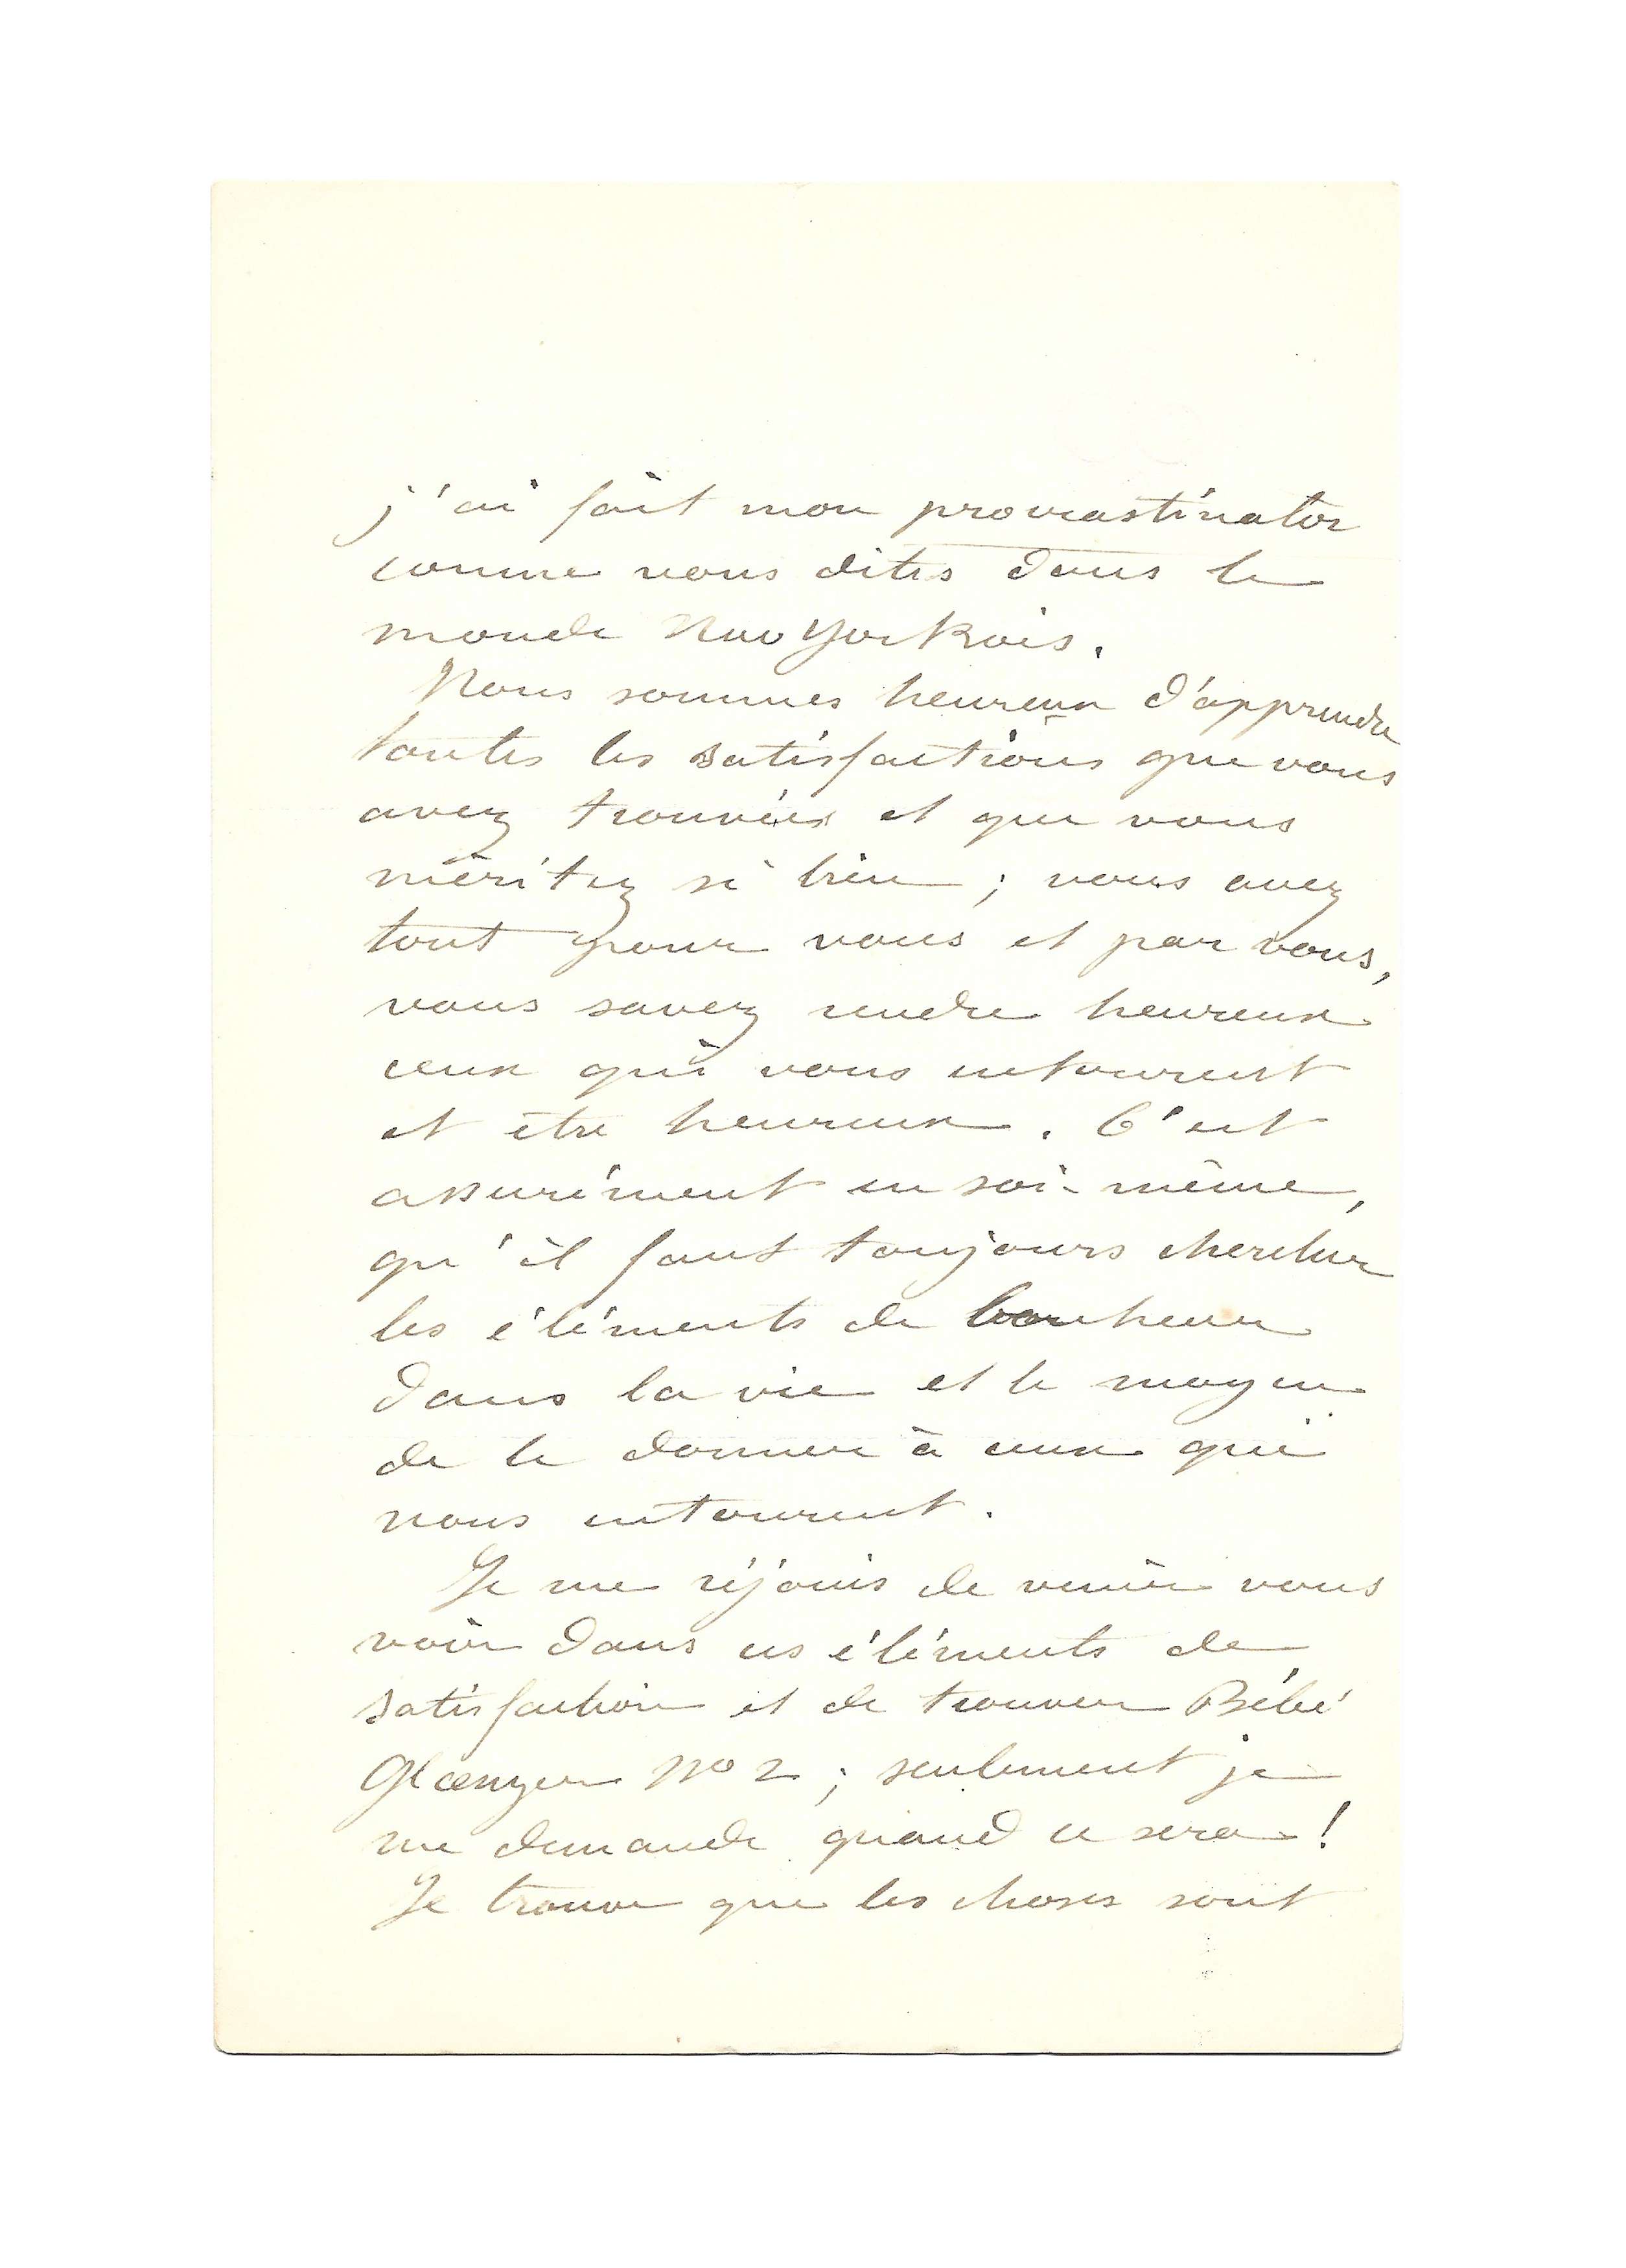 j'ai fait mon procrastinator
comme vous dites dans le
monde New Yorkois.
Nous sommes heureux d'apprendre
toutes les satisfactions que vous
avez trouvées et que vous
méritez si bien ; vous avez
tout pour vous et par vous,
vous savez rendre heureux
ceux qui vous entourent
et être heureux. C'est
assurément en soi-même,
qu'il faut toujours chercher
les éléments de bonheur
dans la vie et le moyen
de le donner à ceux qui
nous entourent.
Je me réjouis de venir vous
voir dans ces éléments de
satisfaction et de trouver Bébé
Glaenzer No 2 ; seulement je
me demande quand ce sera !
Je trouve que les choses sont